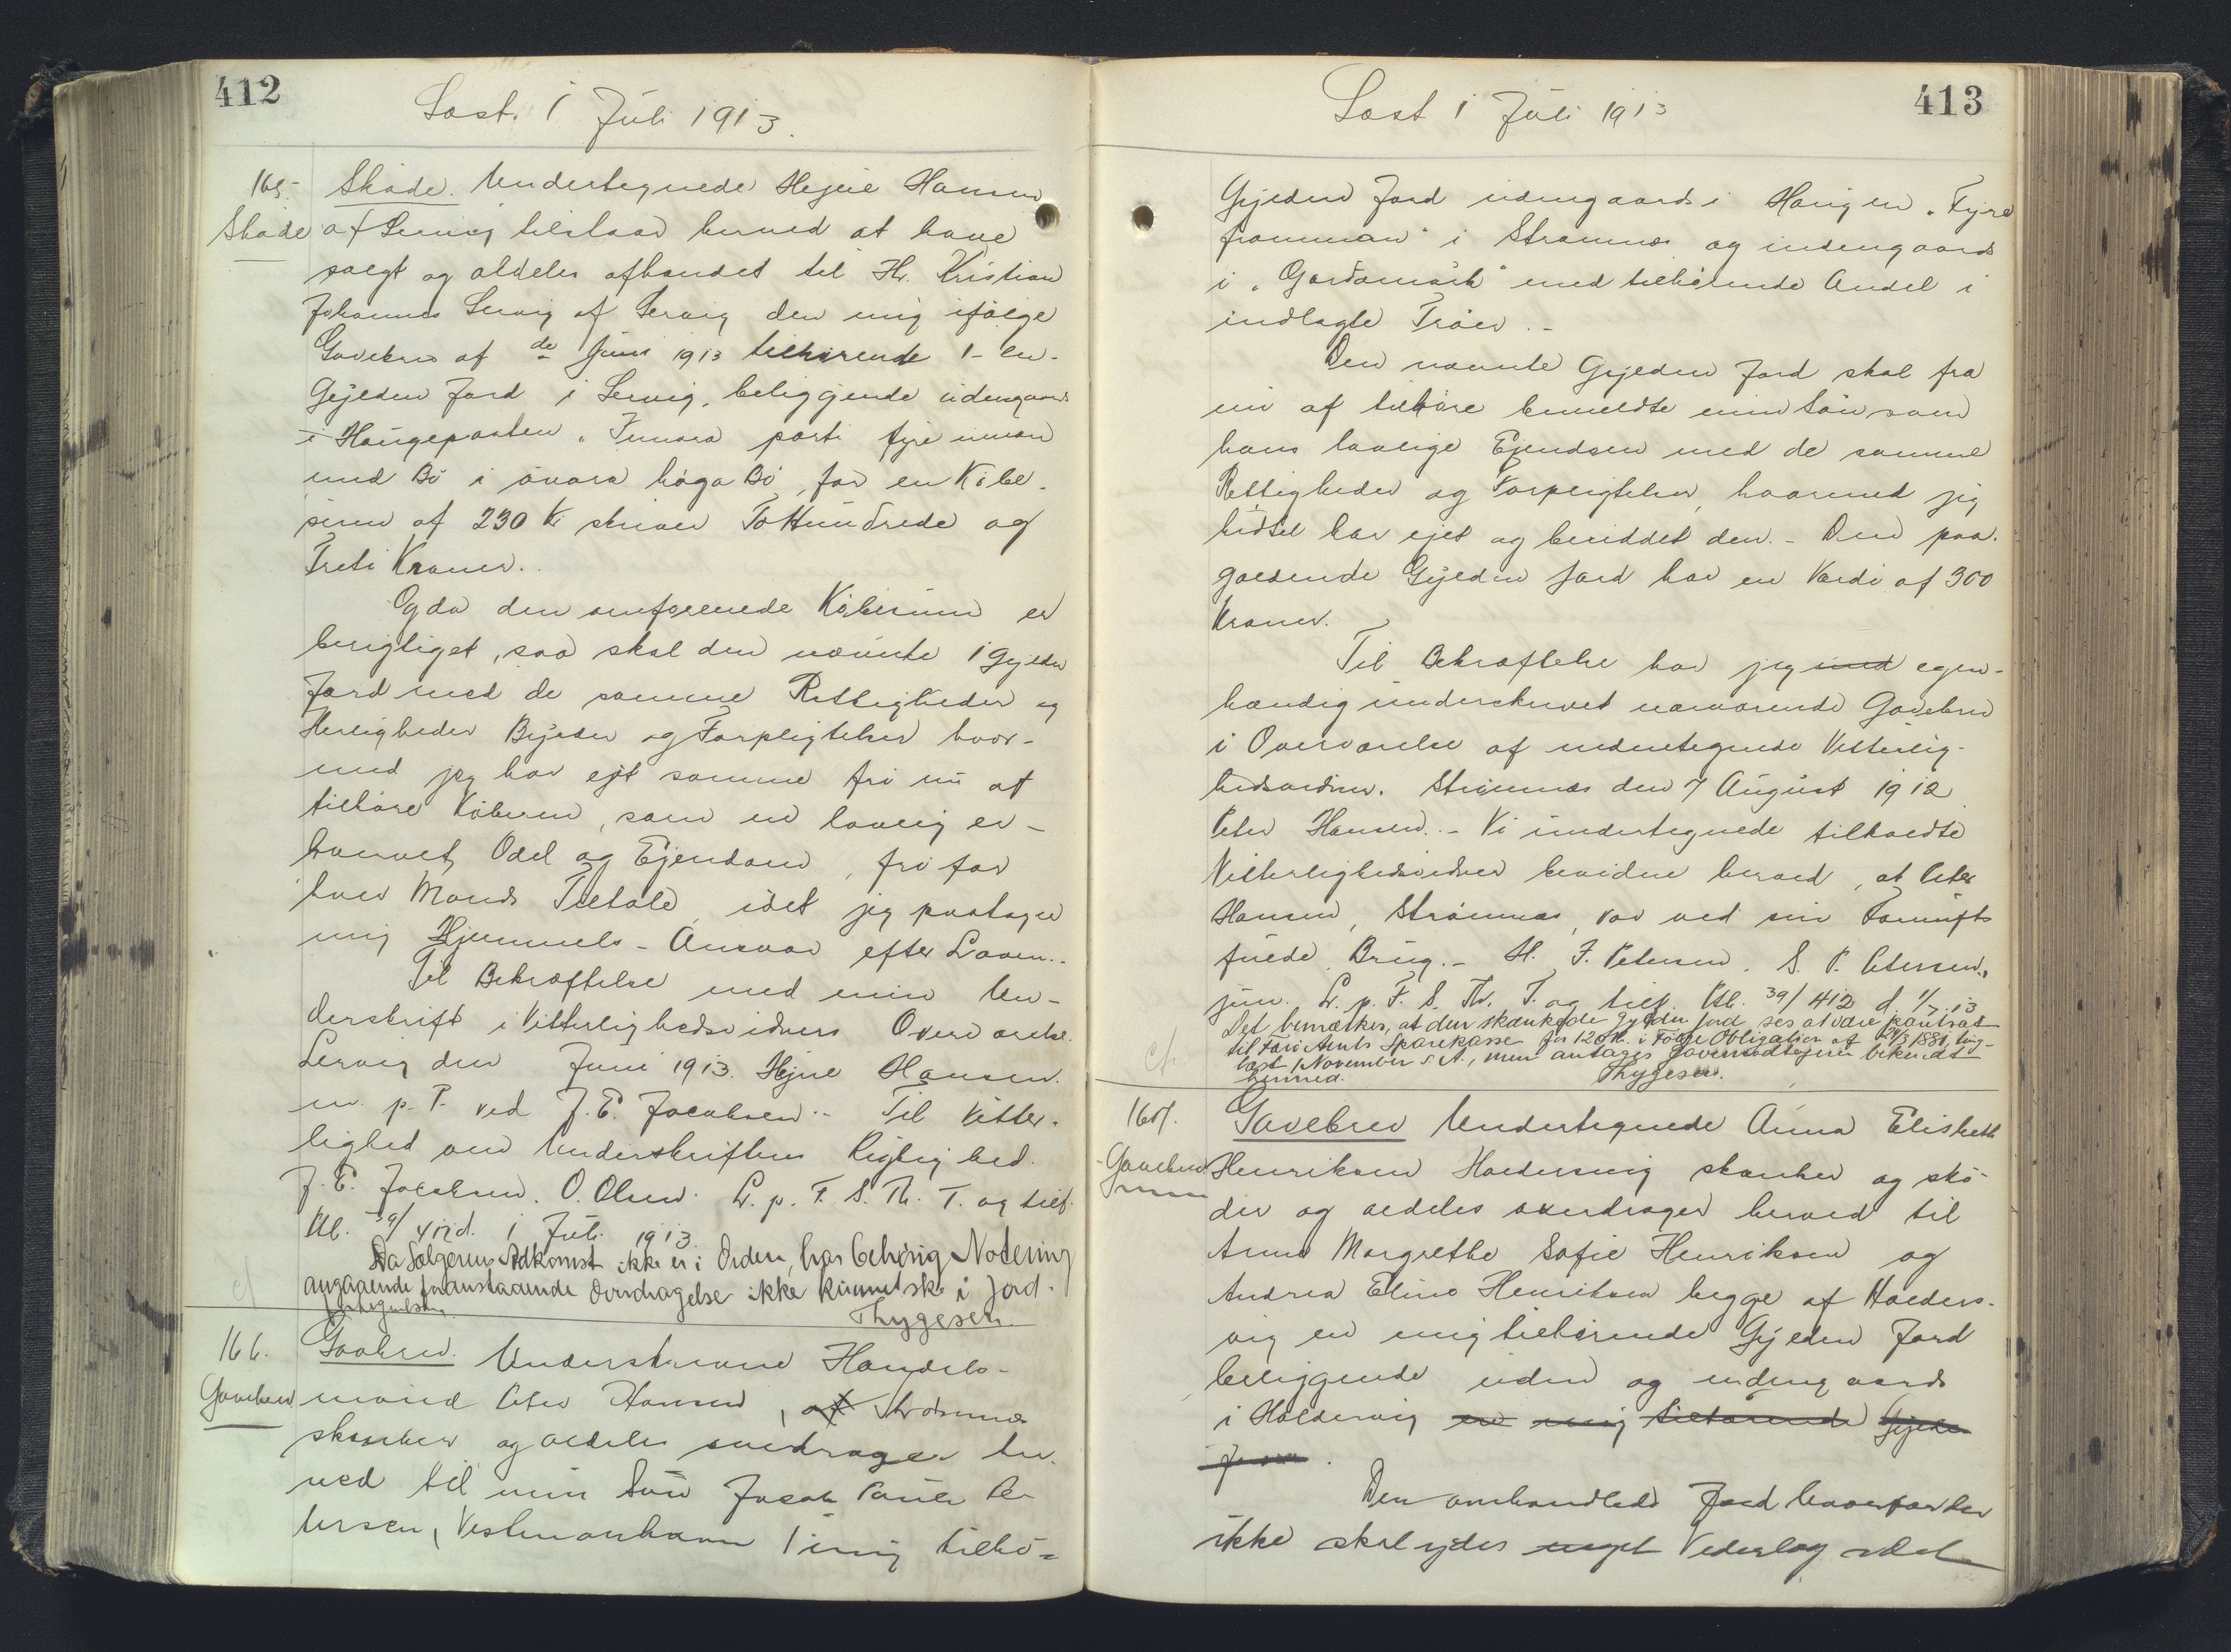 412
Læst 1 Juli 1913.
165 Skøde. Undertegnede Hejne Hansen
Skøde af Lervig tilstaar herved at have
solgt og aldeles afhændet til Hr. Kristian
Johannes Lervig af Lervig den mig ifølge
Gavebrev af de Juni 1913 tilhørende 1 - en -
Gylden Jord i Lervig, beliggende udengaards
i Haugeparten
med Bø i øvara høga Bø, for en Købe-
sum af 230 Kr skriver ToHundrede og
Treti Kroner.
Og da den omførende Købesum er
berigtiget, saa skal den nævnte 1 Gylden
Jord med de samme Rettigheder og
Herligheder Byrder og Forpligtelser hvor-
med jeg har ejet samme fri nu at
tilhøre Køberen, som en lovlig er-
hvervet Odel og Ejendom, fri for
hver Mands Tiltale, idet jeg paatager
mig Hjemmels-Ansvar efter Loven. -
Til Bekræftelse med min Un-
derskrift i Vitterlighedsvidners Overværelse.
Lervig den Juni 1913. Hejne Hansen.
m. p. P. ved J. E. Jacobsen. - Til Vitter-
lighed om Underskriftens Rigtighed.
J. E. Jacobsen. O. Olsen. L. p. F. S. Th. T. og tilf.
Ktl. 39/412 d. 1 Juli 1913.
Da Sælgerens Adkomst ikke er i Orden, har behørig Notering
angaaende foranstaaende Overdragelse ikke kunnet ske i Jord-
Thygesen.
166. Gavebrev. Underskrevne Handels-
Gavebrev mand Peter Hansen, af Strømnæs
skænker og aldeles overdrager her-
ved til min Søn Jacob Pauli Pe-
tersen, Vestmanhavn 1 mig tilhø-
413
Læst 1 Juli 1913
Gylden Jord udengaards i Haugen "Fyre
framman" i Strømnæs og indengaards
i "Gardamørk" med tilhørende Andel i
indlagte Trøer. -
Den nævnte Gylden Jord skal fra
nu af tilhøre bemeldte min Søn som
hans lovlige Ejendom med de samme
Rettigheder og Forpligtelser, hvormed jeg
hidtil har ejet og besiddet den. - Den paa-
gældende Gylden Jord har en Værdi af 300
Kroner.
Til Bekræftelse har jeg med egen-
hændig underskrevet nærværende Gavebrev
i Overværelse af undertegnede Vitterlig-
hedsvidner. Strømnæs den 7 August 1912
Peter Hansen. - Vi undertegnede tilkaldte
Vitterlighedsvidner bevidne herved, at Peter
Hansen, Strømnæs, var ved sin Fornufts
fulde Brug. - H. J. Petersen. S. P. Petersen,
jun. L. p. F. S. Th. T. og tilf. Ktl. 39/412 d. 1/7 13
Det bemærkes, at den skænkede Gylden Jord ses at være pantsat
til Færø Amts Sparekasse for 120 Kr. i Følge Obligation af 24/3 1881, ting-
læst 1 November s. A., men antages Gavemodtageren bekendt
hermed. Thygesen.
167. Gavebrev Undertegnede Anna Elisbeth
Gavebrev Henriksen Haldersvig skænker og skø-
der og aldeles overdrager herved til
Anna Margrethe Sofie Henriksen og
Andrea Elina Henriksen begge af Halders-
vig en mig tilhørende Gylden Jord
beliggende uden og indengaards
i Haldersvig en mig tilhørende Gylden
Jord.
Den omhandlede Jord hvorfor der
ikke skal ydes noget Vederlag